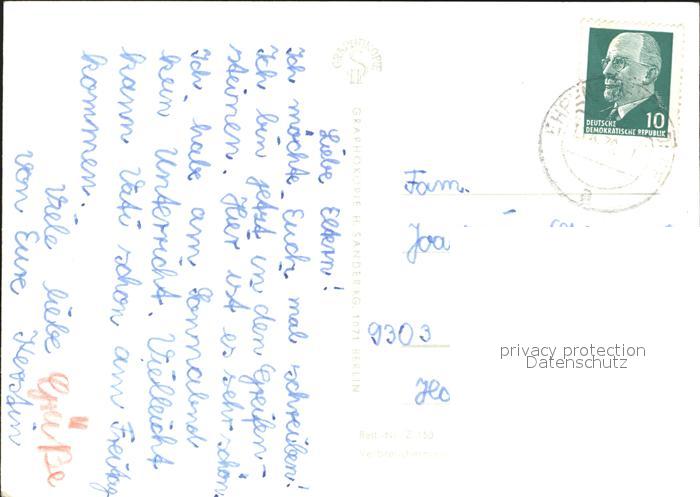 Liebe Eltern!
Ich möchte Euch mal schreiben!
Ich bin jetzt in den Greifen-
steinen. Hier ist es sehr schön.
Ich habe am Sonnabend
kein Unterricht. Vielleicht
kann Vati schon am Freitag
kommen.
Viele liebe Grüße
von Eure Kerstin
GRAPHOKOPIE
GRAPHOKOPIE H. SANDER KG, 1071 BERLIN
DEUTSCHE
DEMOKRATISCHE REPUBLIK
10
Fam.
Joa
9303
Ho
privacy protection
Datenschutz
Best.-Nr. Z 150